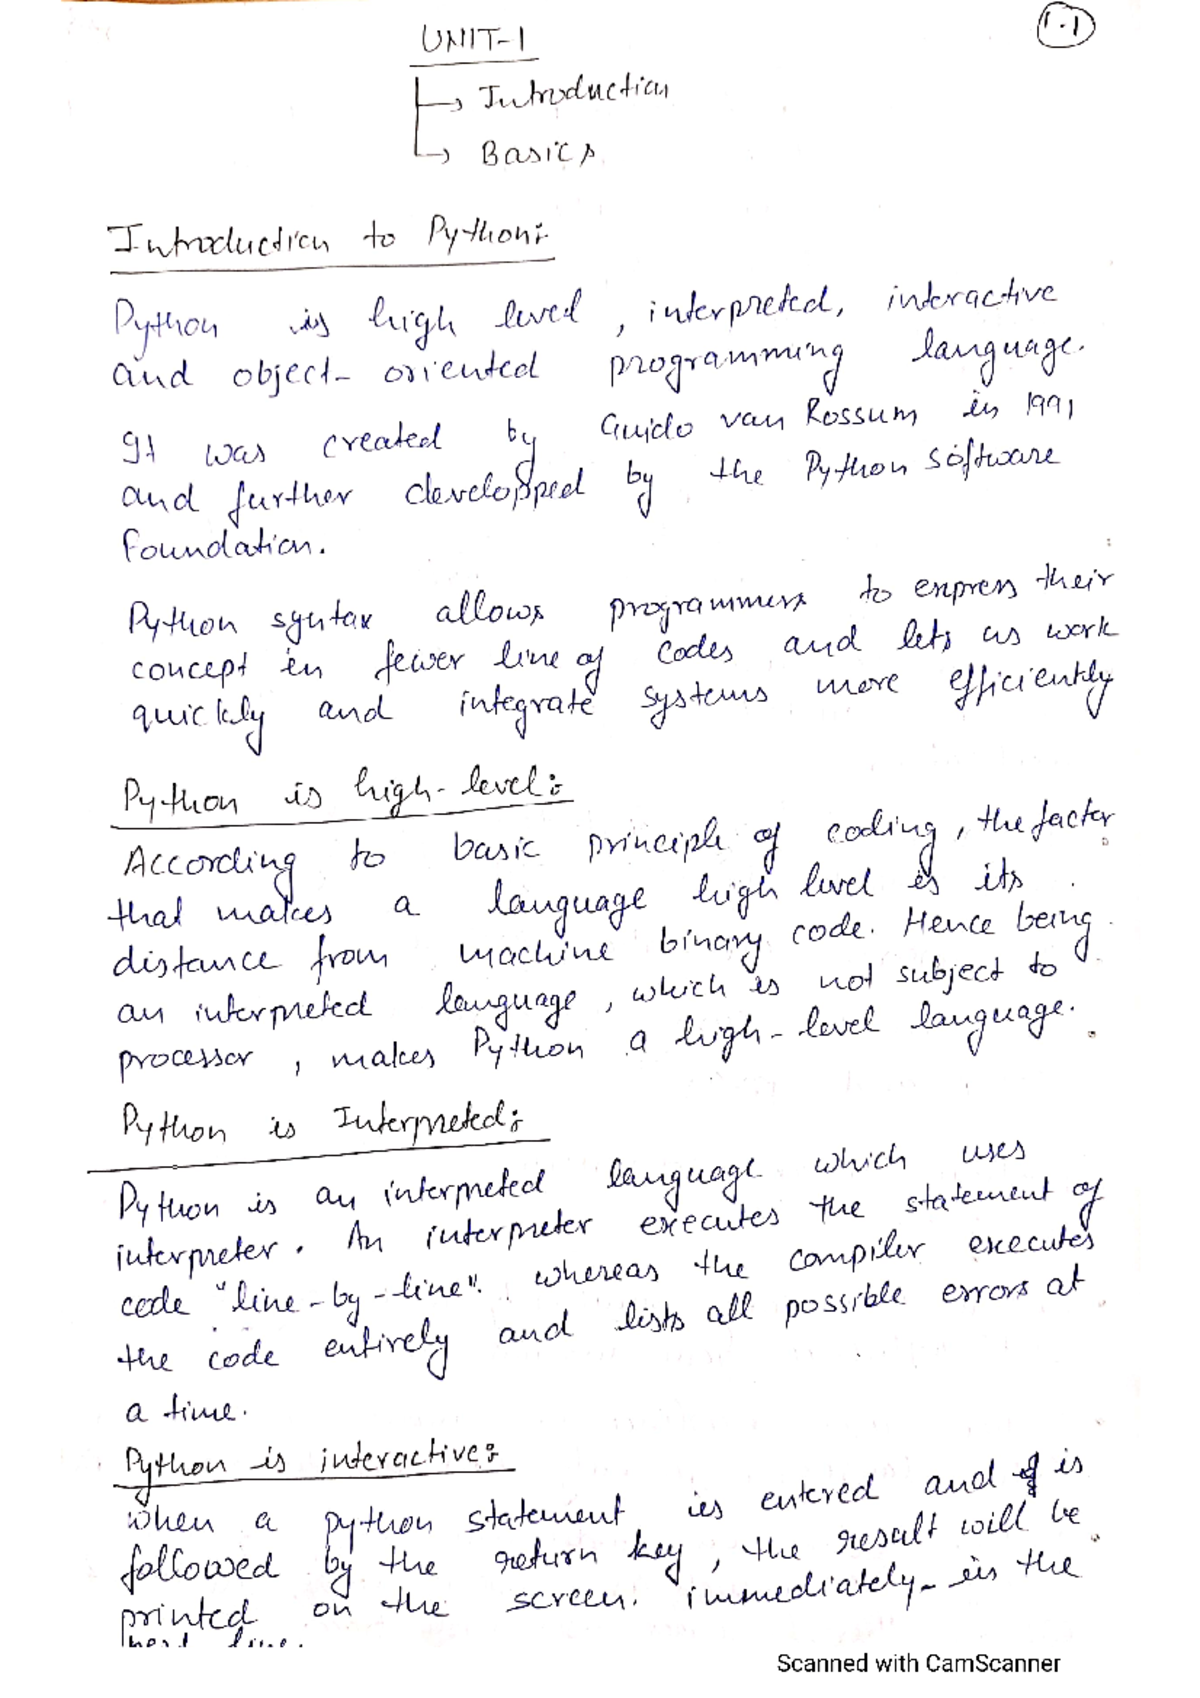 1.1
UNIT-1
→ Introduction
→ Basics
Introduction to Python:-
Python is high level, interpreted, interactive
and object-oriented programming language.
It was created by Guido van Rossum in 1991
and further developped by the Python software
foundation.
Python syntax allows programmers to express their
concept in fewer line of codes and lets us work
quickly and integrate systems more efficiently
Python is high-level:
According to basic principle of coding, the factor
that makes a language high level is its
distance from machine binary code. Hence being
an interpreted language, which is not subject to
processor, makes Python a high-level language.
Python is Interpreted:
Python is an interpreted language which uses
interpreter. An interpreter executes the statement of
code "line-by-line". whereas the compiler executes
the code entirely and lists all possible errors at
a time.
Python is interactive:
When a python statement is entered and is
followed by the return key, the result will be
printed on the screen. immediately- in the
next line.
Scanned with CamScanner